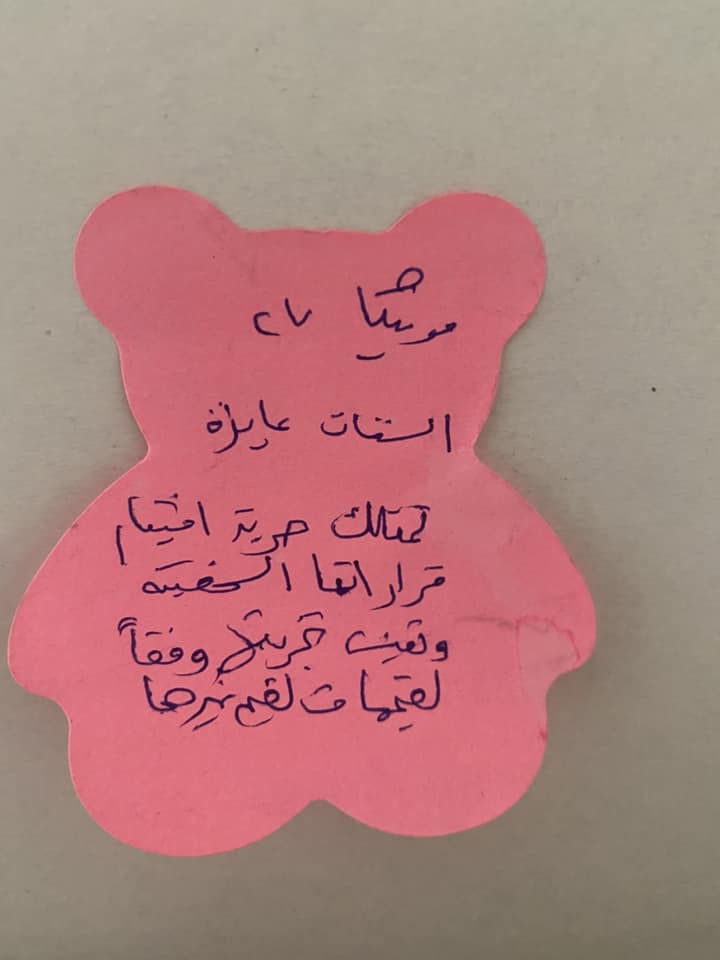 مونيكا ٢٧
الستات عايزة
تمتلك حرية اختيار
قراراتها الشخصية
وتعيش تجربتها وفقاً
لقيمها مش لقيم غيرها